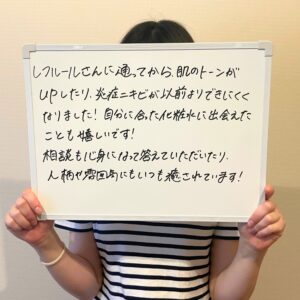 レフルールさんに通ってから、肌のトーンが
UPしたり、炎症ニキビが以前よりできにくく
なりました！自分に合った化粧水に出会えた
ことも嬉しいです！
相談も心身になって答えていただいたり、
人柄や雰囲気にもいつも癒されています！